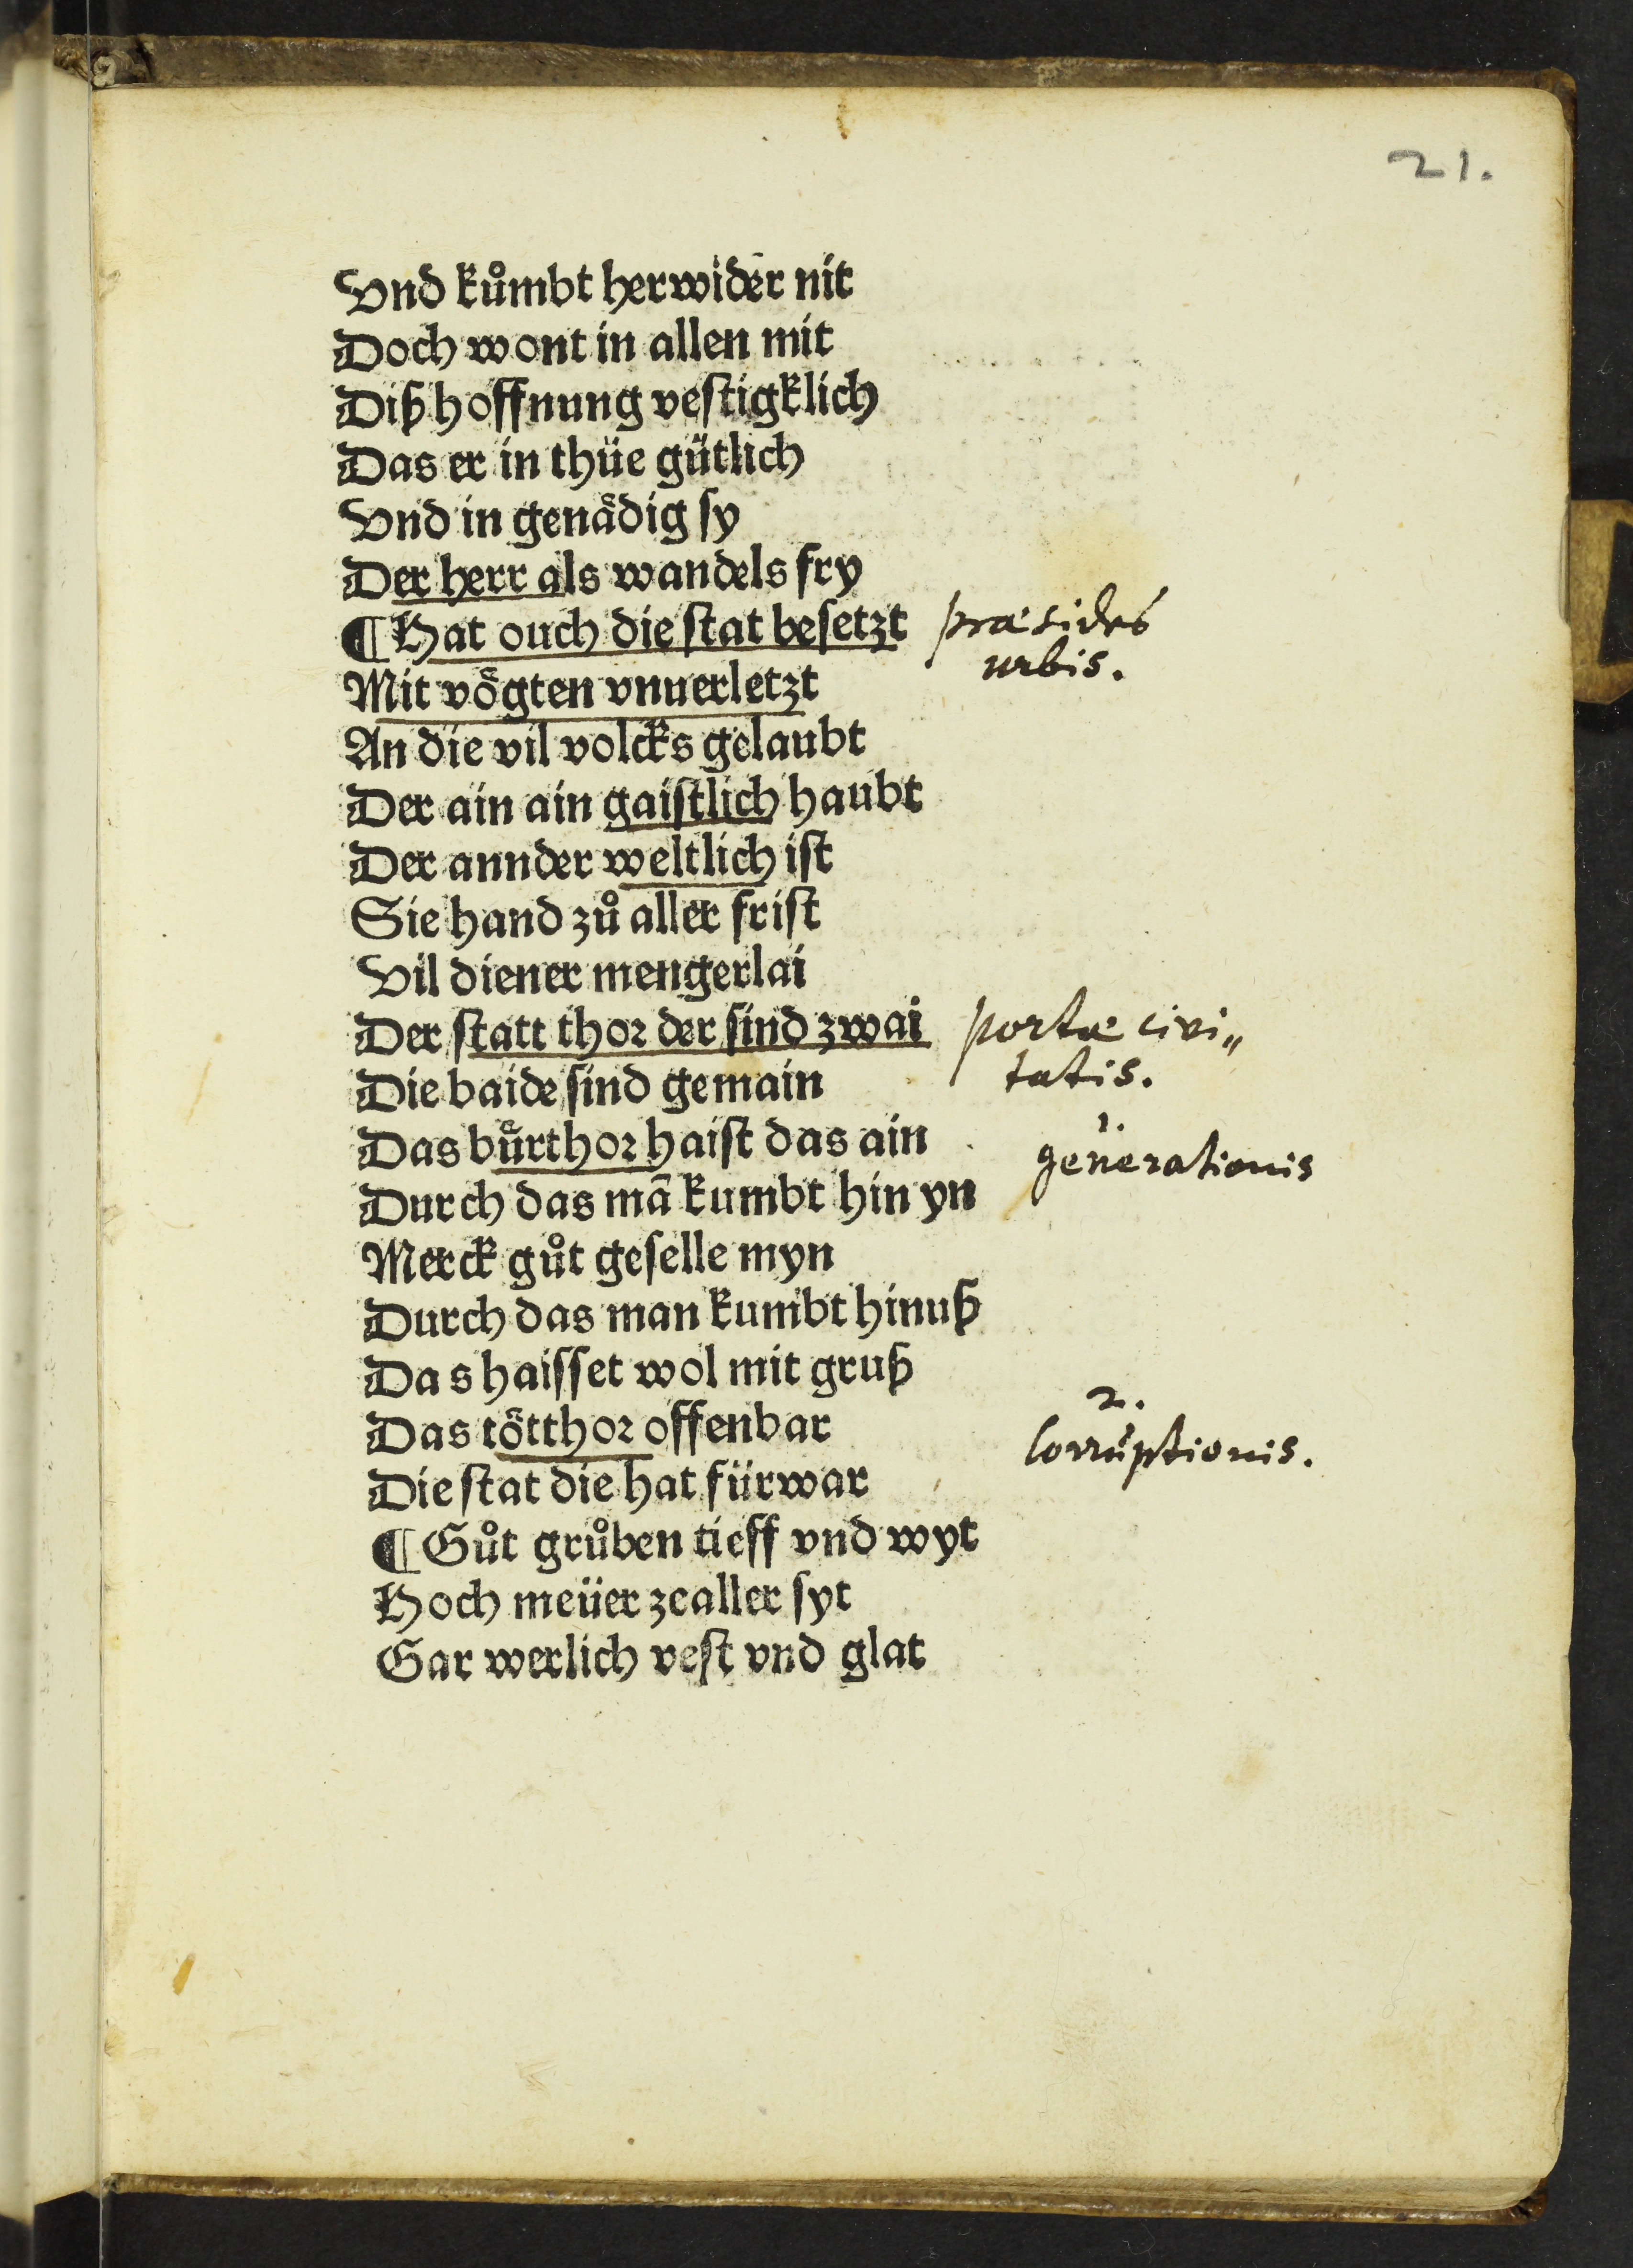 21.
Vnd kůmbt herwider nit
Doch wont in allen mit
Diß hoffnung veſtigklich
Das er in thüe gütlich
Vnd in genådig ſy
Der herr als wandels fry
¶ Hat ouch die ſtat beſetzt præsides
urbis.
Mit vögten vnuerletzt
An die vil volcks gelaubt
Der ain ain gaiſtlich haubt
Der annder weltlich iſt
Sie hand zů aller friſt
Vil diener mengerlai
Der ſtatt thor der ſind zwai portæ civi„
tatis.
Die baide ſind gemain
Das bürthor haiſt das ain 1. generationis
Durch das mã kumbt hin yn
Merck gůt geſelle myn
Durch das man kumbt hinuß
Das haiſſet wol mit gruß
Das tötthor offenbar 2. Corruptionis.
Die ſtat die hat fürwar
¶ Gůt grůben tieff vnd wyt
Hoch meüer ze aller ſyt
Gar werlich veſt vnd glat